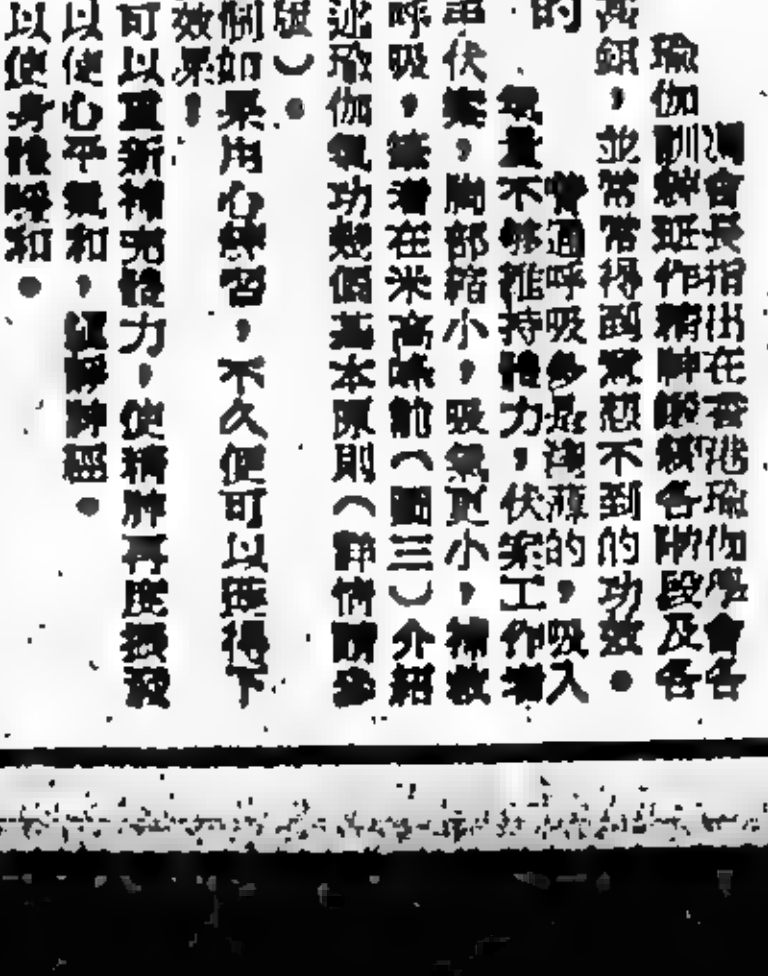 馮會長指出在香港瑜伽學會各
瑜伽訓練班作精神鬆弛各階段及各
高額，並常常得到意想不到的功效。
普通呼吸多是淺薄的，吸入
的
氧氣不够維持體力，伏案工作者
伏案，胸部縮小，吸氣更小，補救
呼吸，接着在米高峰前（圖三）介紹
述瑜伽氣功幾個基本原則（詳情請參
版）。
例如果用心練習，不久便可以獲得下
效果，
可以重新補充體力，使精神再度煥發
以使心平氣和，鎮靜神經。
以使身體暖和。